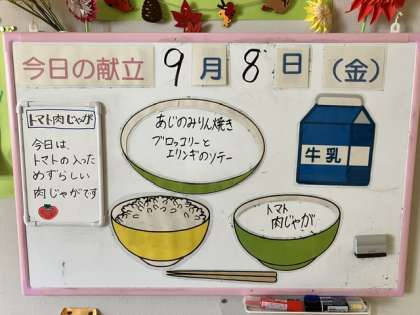 今日の献立 9月8日(金)
トマト肉じゃが
今日は、
トマトの入った
めずらしい
肉じゃがです
あじのみりん焼き
ブロッコリーと
エリンギのソテー
牛乳
トマト
肉じゃが